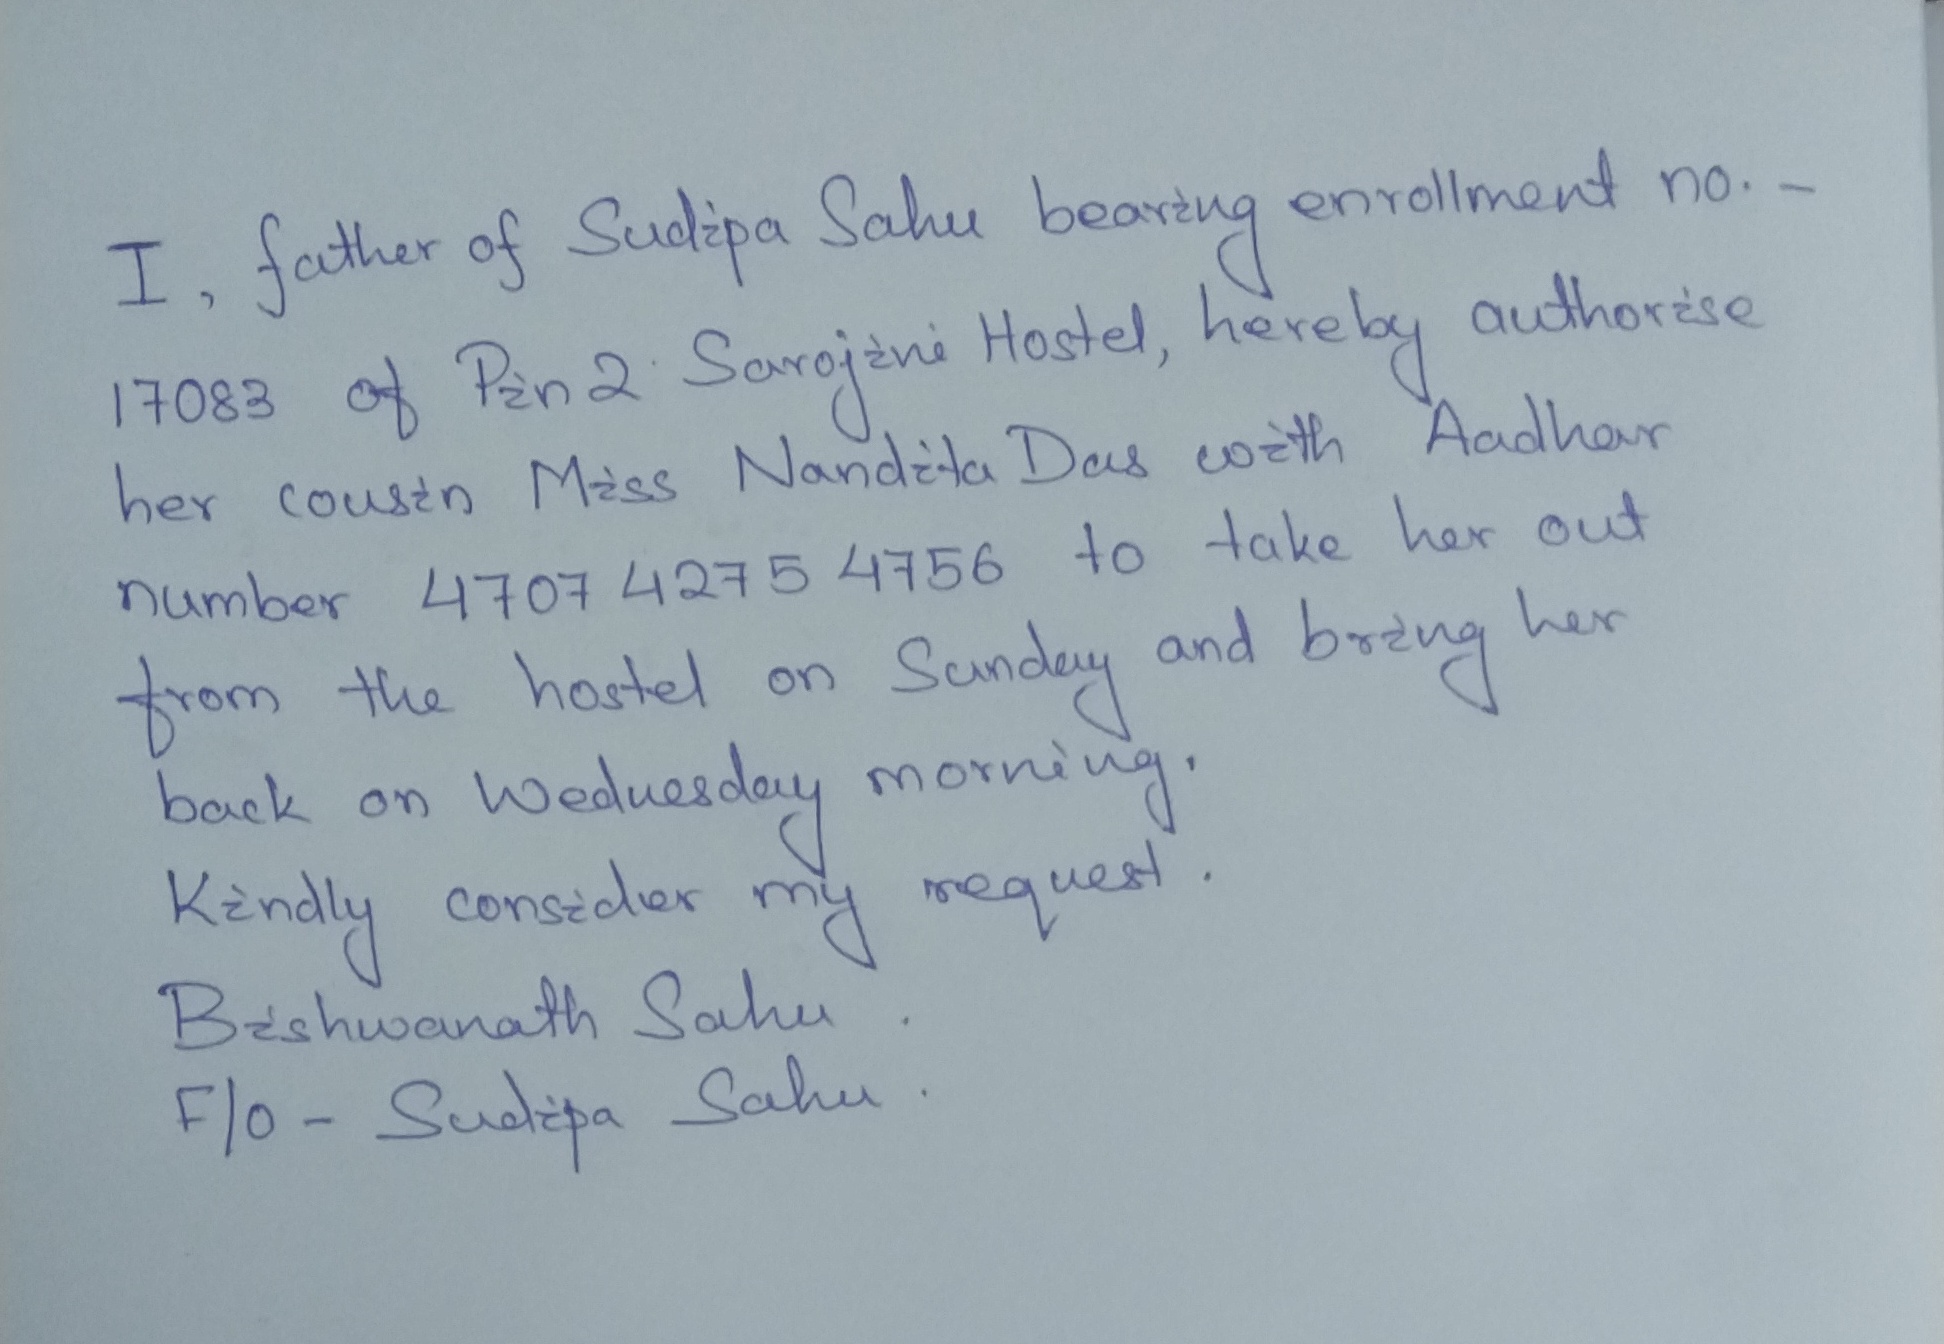 I, father of Sudipa Sahu bearing enrollment no. -
17083 of Pin 2 Sarojini Hostel, hereby authorise
her cousin Miss Nandita Das with Aadhar
number 4707 4275 4756 to take her out
from the hostel on Sunday and bring her
back on Wednesday morning.
Kindly consider my request.
Bishwanath Sahu.
F/O - Sudipa Sahu.